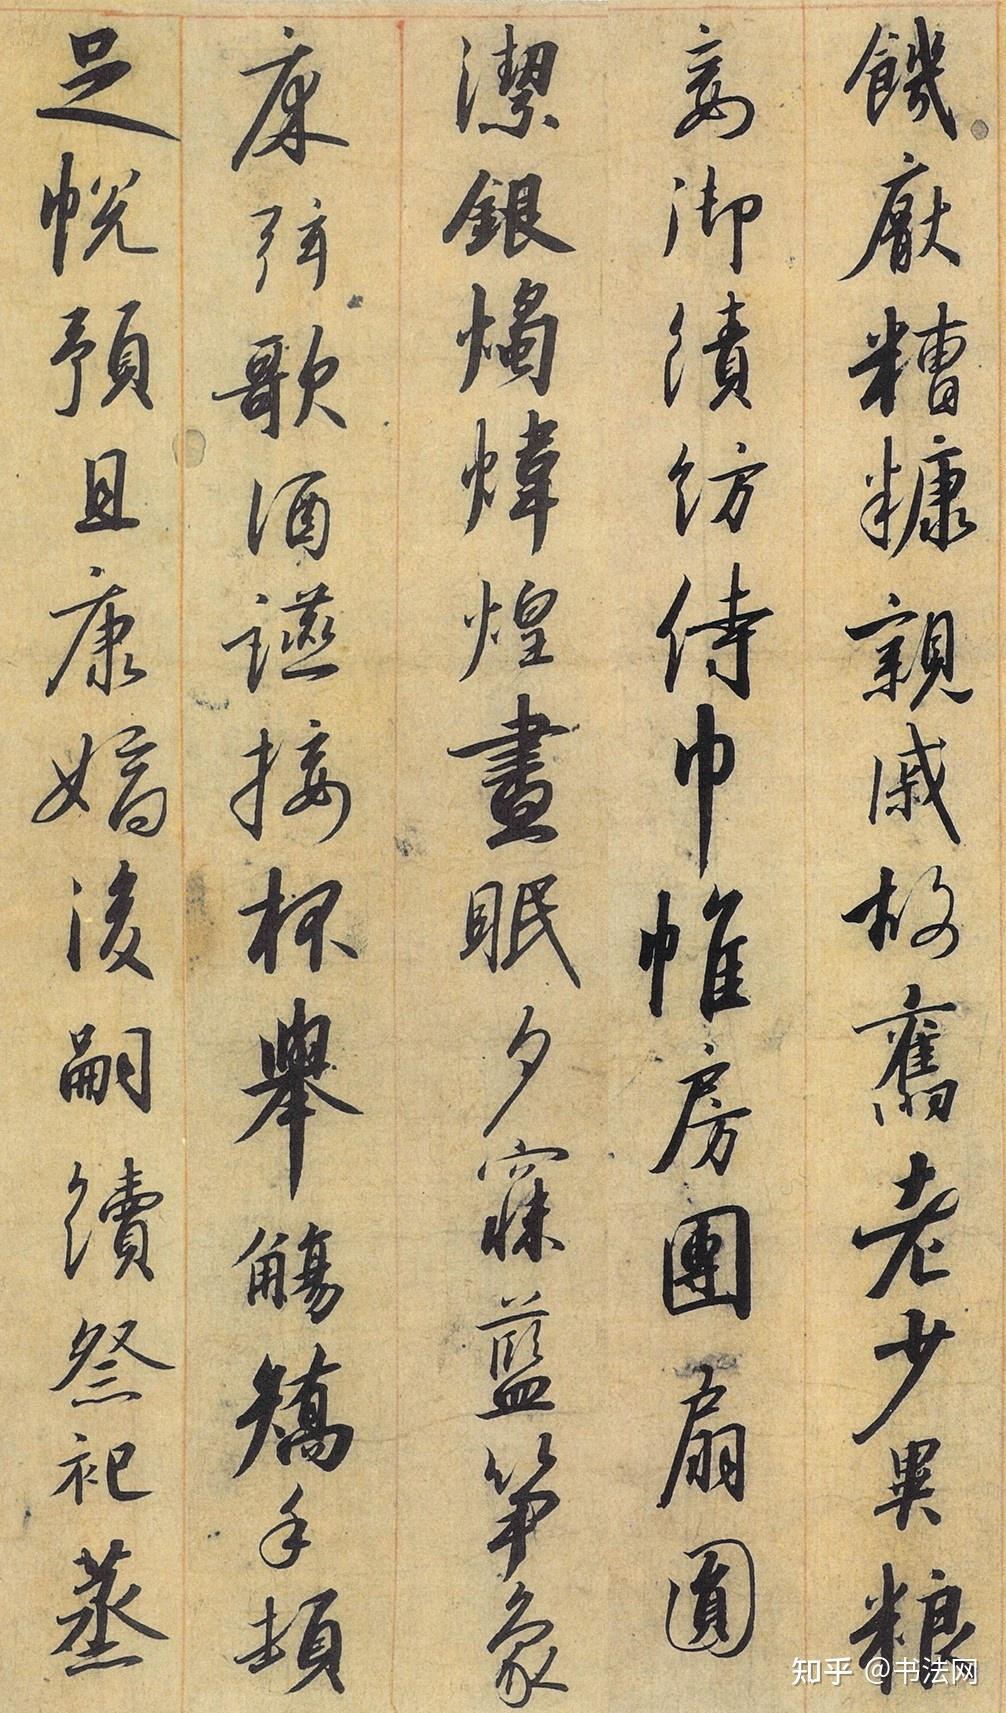 饑厭糟糠親戚故舊老少異粮
妾御績紡侍巾帷房團扇圓
潔銀燭煒煌晝眠夕寐藍笋象
床弦歌酒讌接杯舉觴矯手頓
足悅預且康嫡後嗣續祭祀蒸
知乎 @书法网